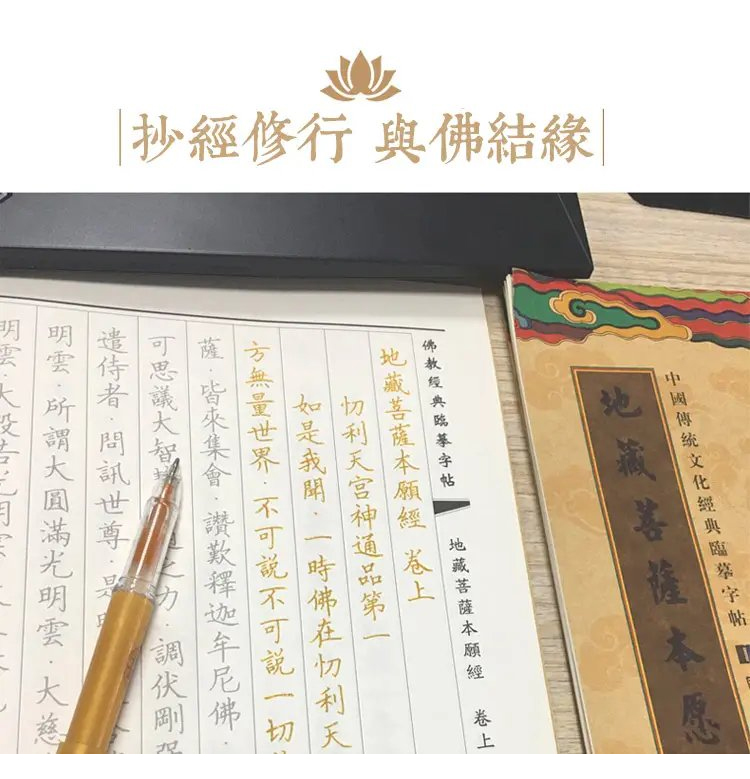 抄經修行 與佛結緣
中國傳統文化經典臨摹字帖
地藏菩薩本愿
佛教經典臨摹字帖 地藏菩薩本願經 卷上
地藏菩薩本願經 卷上
忉利天宮神通品第一
如是我聞·一時佛在忉利天
方無量世界·不可說不可說一切
薩·皆來集會·讚歎釋迦牟尼佛·
可思議大智 之力·調伏剛
遣侍者·問訊世尊·是
明雲·所謂大圓滿光明雲·大慈
明雲·大般若光明雲